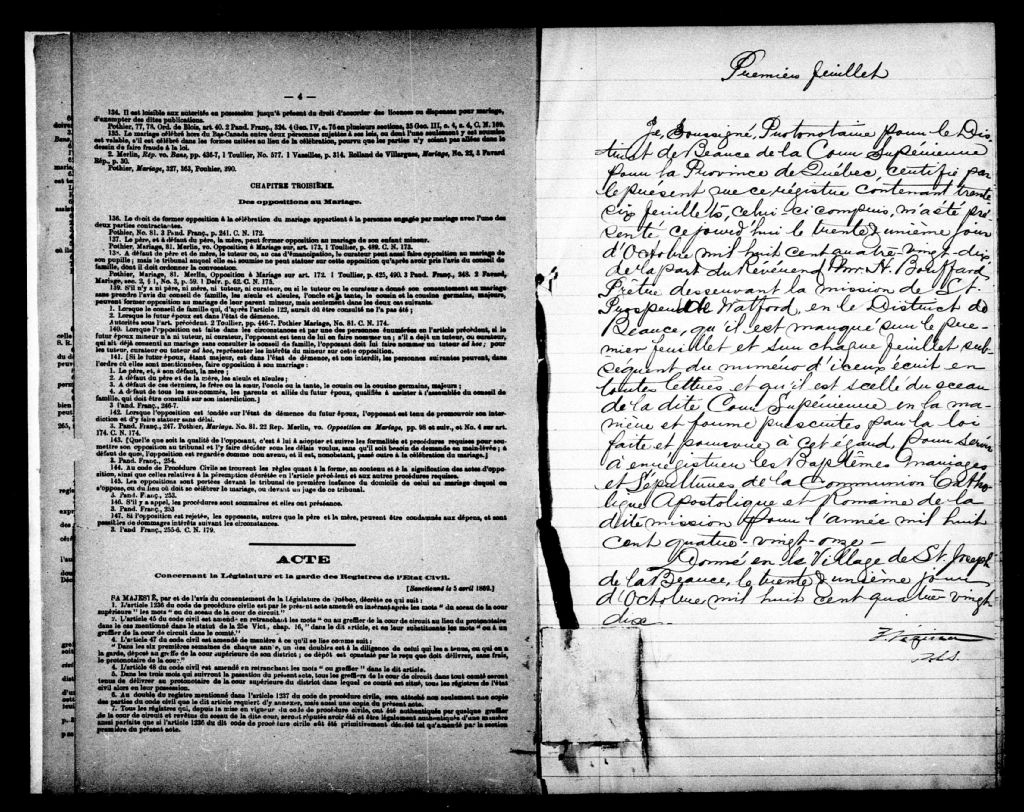 — 4 —
134. Il est loisible aux autorités en possession jusqu'à présent du droit d'accorder des licences ou dispenses pour mariage,
d'exempter des dites publications.
Pothier, 77, 78. Ord. de Blois, art. 40. 2 Pand. Franç., 324. 4 Geo. IV, a. 76 en plusieurs sections, 35 Geo. III, c. 4, s. 4, C. N. 169.
135. Le mariage célébré hors du Bas-Canada entre deux personnes sujettes à ses lois, ou dont l'une seulement y est soumise
est valable, s'il est célébré dans les formes usitées au lieu de la célébration, pourvu que les parties n'y soient pas allées dans le
dessein de faire fraude à la loi.
2. Merlin, Rép. vo. Bans, pp. 436-7, 1 Toullier, No. 577. 1 Vazeilles, p. 314. Rolland de Villargues, Mariage, No. 22, 3 Favard
Rép., p. 30.
Pothier, Mariage, 327, 363, Pothier, 390.
CHAPITRE TROISIÈME.
Des oppositions au Mariage.
136. Le droit de former opposition à la célébration du mariage appartient à la personne engagée par mariage avec l'une des
deux parties contractantes.
Pothier, No. 81. 3 Pand. Franç., p. 241. C. N. 172.
137. Le père, et à défaut du père, la mère, peut former opposition au mariage de son enfant mineur.
Pothier, Mariage, 81. Merlin, vo. Opposition à Mariage sur, art. 173, 1 Toullier, p. 489. C. N. 173.
138. A défaut de père et de mère, le tuteur ou, au cas d'émancipation, le curateur peut aussi faire opposition au mariage de
son pupille; mais le tribunal auquel elle est soumise ne peut statuer sur cette opposition qu'après avoir pris l'avis du conseil de
famille, dont il doit ordonner la convocation.
Pothier, Mariage, 81. Merlin, Opposition à Mariage sur art. 172. 1 Toullier, p. 425, 490. 3 Pand. Franç., 248. 2 Favard,
Mariage, sec. 2, § 1, No. 3, p. 59. 1 Delv. p. 62. C. N. 175.
139. S'il n'y a ni père, ni mère, ni tuteur, ni curateur, ou si le tuteur ou le curateur a donné son consentement au mariage
sans prendre l'avis du conseil de famille, les aïeuls et aïeules, l'oncle et la tante, le cousin et la cousine germains, majeurs,
peuvent former opposition au mariage de leur parent mineur, mais seulement dans les deux cas suivants.
1. Lorsque le conseil de famille qui, d'après l'article 122, aurait dû être consulté ne l'a pas été;
2. Lorsque le futur époux est dans l'état de démence.
Autorités sous l'art. précédent 2 Toullier, pp. 446-7. Pothier Mariage, No. 81. C. N. 174.
140. Lorsque l'opposition est faite dans les circonstances et par une des personnes énumérées en l'article précédent, si le
futur époux mineur n'a ni tuteur, ni curateur, l'opposant est tenu de lui en faire nommer un; s'il a déjà un tuteur, ou curateur,
qui ait déjà consenti au mariage sans consulter le conseil de famille, l'opposant doit lui faire nommer un tuteur ad hoc; pour
les tuteur, curateur ou tuteur ad hoc, représenter les intérêts du mineur sur cette opposition.
141. [Si le futur époux, étant majeur, est dans l'état de démence, et non interdit, les personnes suivantes peuvent, dans
l'ordre où elles sont mentionnées, faire opposition à son mariage:
1. Le père, et, à son défaut, la mère;
2. A défaut du père et de la mère, les aïeuls et aïeules;
3. A défaut de ces derniers, le frère ou la sœur, l'oncle ou la tante, le cousin ou la cousine germains, majeurs;
4. A défaut de tous les sus-nommés, les parents et alliés du futur époux, qualifiés à assister à l'assemblée du conseil de
famille, qui doit être consulté sur son interdiction.]
3 Pand. Franç., 246-7.
142. Lorsque l'opposition est fondée sur l'état de démence du futur époux, l'opposant est tenu de promouvoir son inter-
diction et d'y faire statuer sans délai.
3. Pand. Franç., 247. Pothier, Mariage, No. 81. 22 Rep. Merlin, vo. Opposition au Mariage, pp. 98 et suiv., et No. 4 sur art.
174. C. N. 174.
143. [Quelle que soit la qualité de l'opposant, c'est à lui à adopter et suivre les formalités et procédures requises pour sou-
mettre son opposition au tribunal et l'y faire décider sous les délais voulus, sans qu'il soit besoin de demande en main-levée; à
défaut de quoi, l'opposition est regardée comme non avenu, et il est, nonobstant, passé outre à la célébration du mariage.]
3. Pand. Franç., 254.
144. Au code de Procédure Civile se trouvent les règles quant à la forme, au contenu et à la signification des actes d'oppo-
sition, ainsi que celles relatives à la péremption décrétée en l'article précédent et aux autres procédures requises.
145. Les oppositions sont portées devant le tribunal de première instance du domicile de celui au mariage duquel on
s'oppose, ou du lieu où doit se célébrer le mariage, ou devant un juge de ce tribunal.
3. Pand. Franç., 253.
146. S'il y a appel, les procédures sont sommaires et elles ont préséance.
3. Pand. Franç., 253
147. Si l'opposition est rejetée, les opposants, autres que le père et la mère, peuvent être condamnés aux dépens, et sont
passibles de dommages intérêts suivant les circonstances.
3. Pand Franç., 255-6. C. N. 179.
ACTE
Concernant la Législature et la garde des Registres de l'Etat Civil.
[Sanctionné le 5 avril 1869.]
SA MAJESTÉ, par et de l'avis du consentement de la Législature de Québec, décrète ce qui suit:
1. L'article 1236 du code de procédure civile est par le présent acte amendé en insérant après les mots "du sceau de la cour
supérieure" les mots "ou du sceau de la cour de circuit."
2. L'article 45 du code civil est amendé en retranchant les mots "ou au greffier de la cour de circuit au lieu du protonotaire
dans le cas mentionné dans le statut de la 25e Vict., chap. 16," dans le dit article, et en leur substituant les mots "ou à un
greffier de la cour de circuit dans le comté."
4. L'article 47 du code civil est amendé de manière à ce qu'il se lise comme suit:
"Dans les six premières semaines de chaque année, un des doubles est à la diligence de celui qui les a tenus, ou qui en a
la garde, déposé au greffe de la cour supérieure de son district; ce dépôt est constaté par le reçu que doit délivrer, sans frais,
le protonotaire de la cour."
4. L'article 48 du code civil est amendé en retranchant les mots "ou greffier" dans le dit article.
5. Dans les trois mois qui suivront la passation du présent acte, tous les greffiers de la cour de circuit dans tout comté seront
tenus de délivrer au protonotaire de la cour supérieure du district dans lequel ce comté est situé, tous les régistres de l'état
civil alors en leur possession.
6. Au double du registre mentionné dans l'article 1237 du code de procédure civile, sera attaché non seulement une copie
des parties du code civil que le dit article requiert d'y annexer, mais aussi une copie du présent acte.
7. Tous les régistres qui, depuis la mise en vigueur du code de procédure civile, ont été authentiqués par quelque greffier
de la cour de circuit et revêtus du sceau de la dite cour, seront réputés avoir été et être légalement authentiqués d'une manière
aussi parfaite que si l'article 1236 du dit code de procédure civile eût été primitivement décrété tel qu'amendé par la section
première du présent acte.
Premier feuillet
Je, Soussigné, Protonotaire pour le Dis-
trict de Beauce de la Cour Supérieure
pour la Province de Québec, certifie par
le présent que ce régistre contenant trente
six feuillets, celui-ci compris, m'a été pré
senté ce jourd'hui le trente & unième jour
d'Octobre mil huit cent quatre-vingt-dix,
de la part du Révérend Mr. N. Bouffard
Prêtre desservant la mission de St.
Prosper de Watford, en le District de
Beauce, qu'il est marqué sur le pre-
mier feuillet et sur chaque feuillet sub-
séquent du numéro d'iceux écrit en
toutes lettres et qu'il est scellé du sceau
de la dite Cour Supérieure en la ma-
nière et forme prescrites par la loi
faite et pourvue à cet égard, Pour servir
à enrégistrer les Baptêmes Mariages
et Sépultures de la Communion Catho-
lique Apostolique et Romaine de la
dite mission pour l'année mil huit
cent quatre-vingt-onze-
Donné en le Village de St Joseph
de la Beauce, le trente & unième jour
d'Octobre mil huit cent quatre-vingt-
dix-